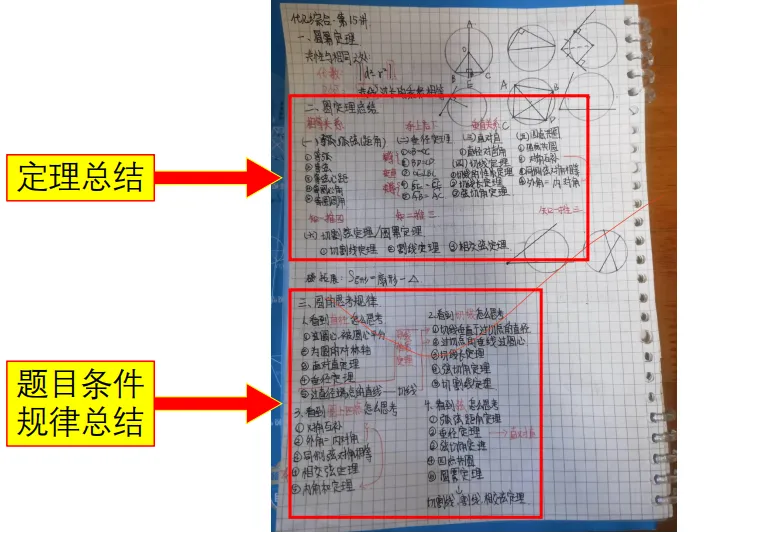 定理总结
题目条件
规律总结
代几综合-第15讲
一、圆幂定理
共性与相同之处
代数: |d²-r²|
二、圆定理总结
等等关系
垂直关系
(一)等弧弦距角
①等弧
②等弦
③等弦心距
④等圆心角
⑤等圆周角
知一推四
(二)垂径定理
知二推三
(三)直对直
①直径对直角
(四)切线定理
②切线长定理
③弦切角定理
(五)四点共圆
①四点共圆
②对角互补
③同侧弦对角相等
④外角=内对角
知一推三
(六)切割线定理/圆幂定理
①切割线定理 ②割线定理 ③相交弦定理
三、圆的思考规律
1.看到直径怎么思考
①弦圆心,被圆心平分
②为圆的对称轴
③直对直定理
④垂径定理
⑤过直径端点的直线——切线
2.看到切线怎么思考
①切线垂直于过切点的直径
②过切点的垂线过圆心
③切线长定理
④弦切角定理
⑤切割线定理
3.看到圆上四点怎么思考
①对角互补
②外角=内对角
③同侧弦对角相等
④相交弦定理
⑤内角和定理
4.看到弦怎么思考
①弧弦距角定理
②垂径定理 →直对直
③弦切角定理
④四点共圆
⑤圆幂定理
切割线,割线,相交弦定理